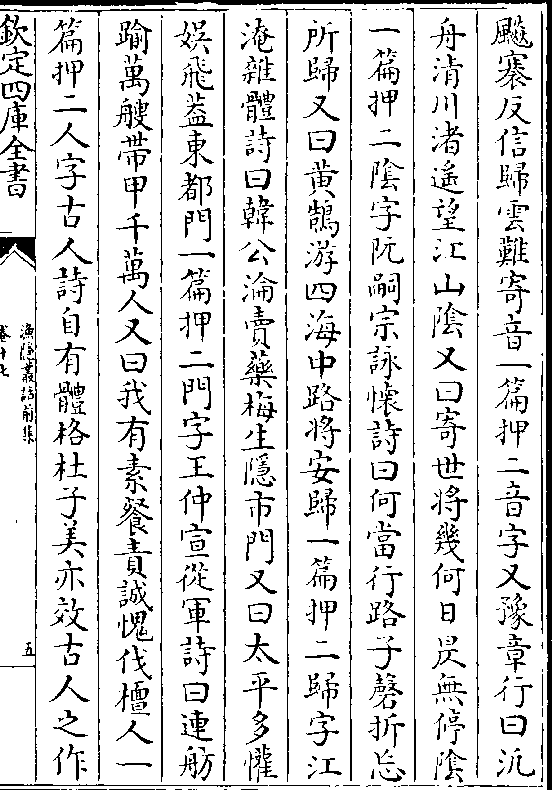 飈褰反信歸雲難寄音一篇押二音字又豫章行曰汎
舟清川渚遙望江山陰又曰寄世將幾何日昃無停陰
一篇押二陰字阮嗣宗詠懷詩曰何當行路子磬折忘
所歸又曰黄鵠游四海中路將安歸一篇押二歸字江
淹雜體詩曰韓公淪賣藥梅生隱市門又曰太平多懽
娯飛葢東都門一篇押二門字王仲宣從軍詩曰連舫
踰萬艘帶甲千萬人又曰我有素餐責誠愧伐檀人一
篇押二人字古人詩自有體格杜子美亦效古人之作
欽定四庫全書
漁隱叢話前集
卷十七
五